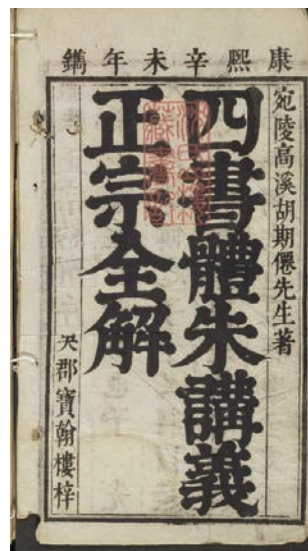 康熙辛未年鐫
宛陵高溪胡期僊先生著
四書體朱講義
正宗全解
吳郡寶翰樓梓